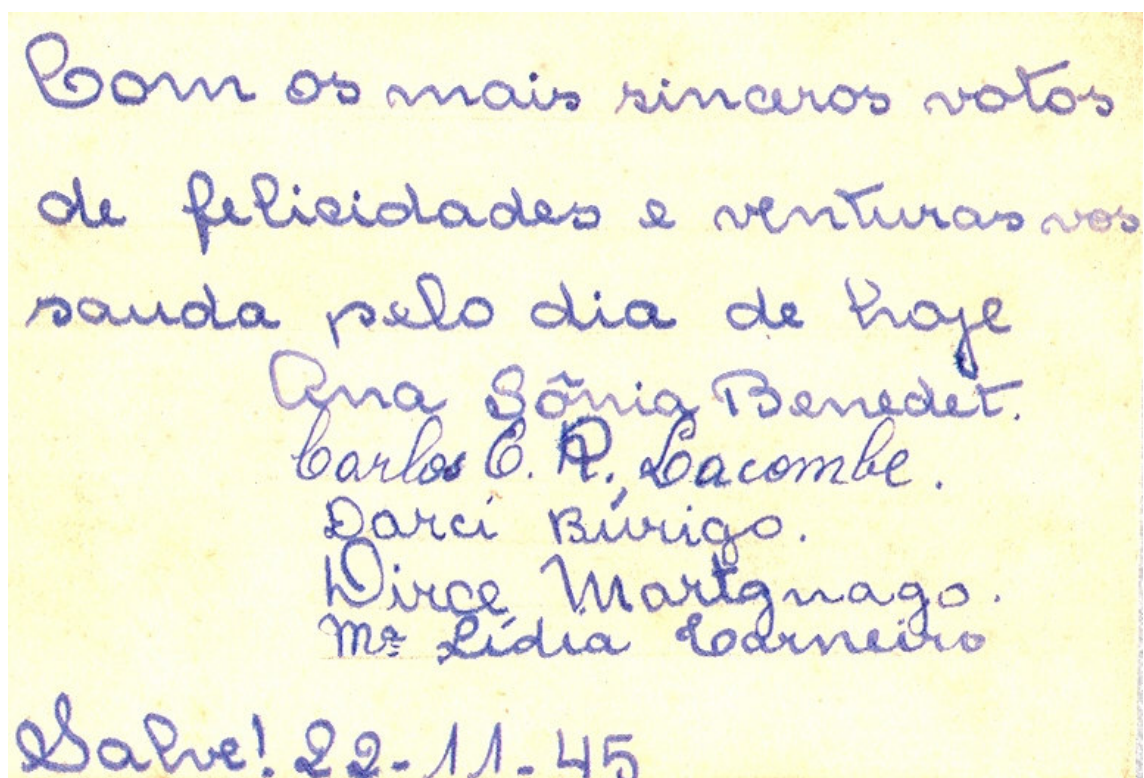 Com os mais sinceros votos
de felicidades e venturas vos
sauda pelo dia de hoje
Ana Sônia Benedet.
Carlos E. R. Lacombe.
Darci Búrigo.
Dirce Martgnago.
Mª Lídia Carneiro
Salve! 22-11-45